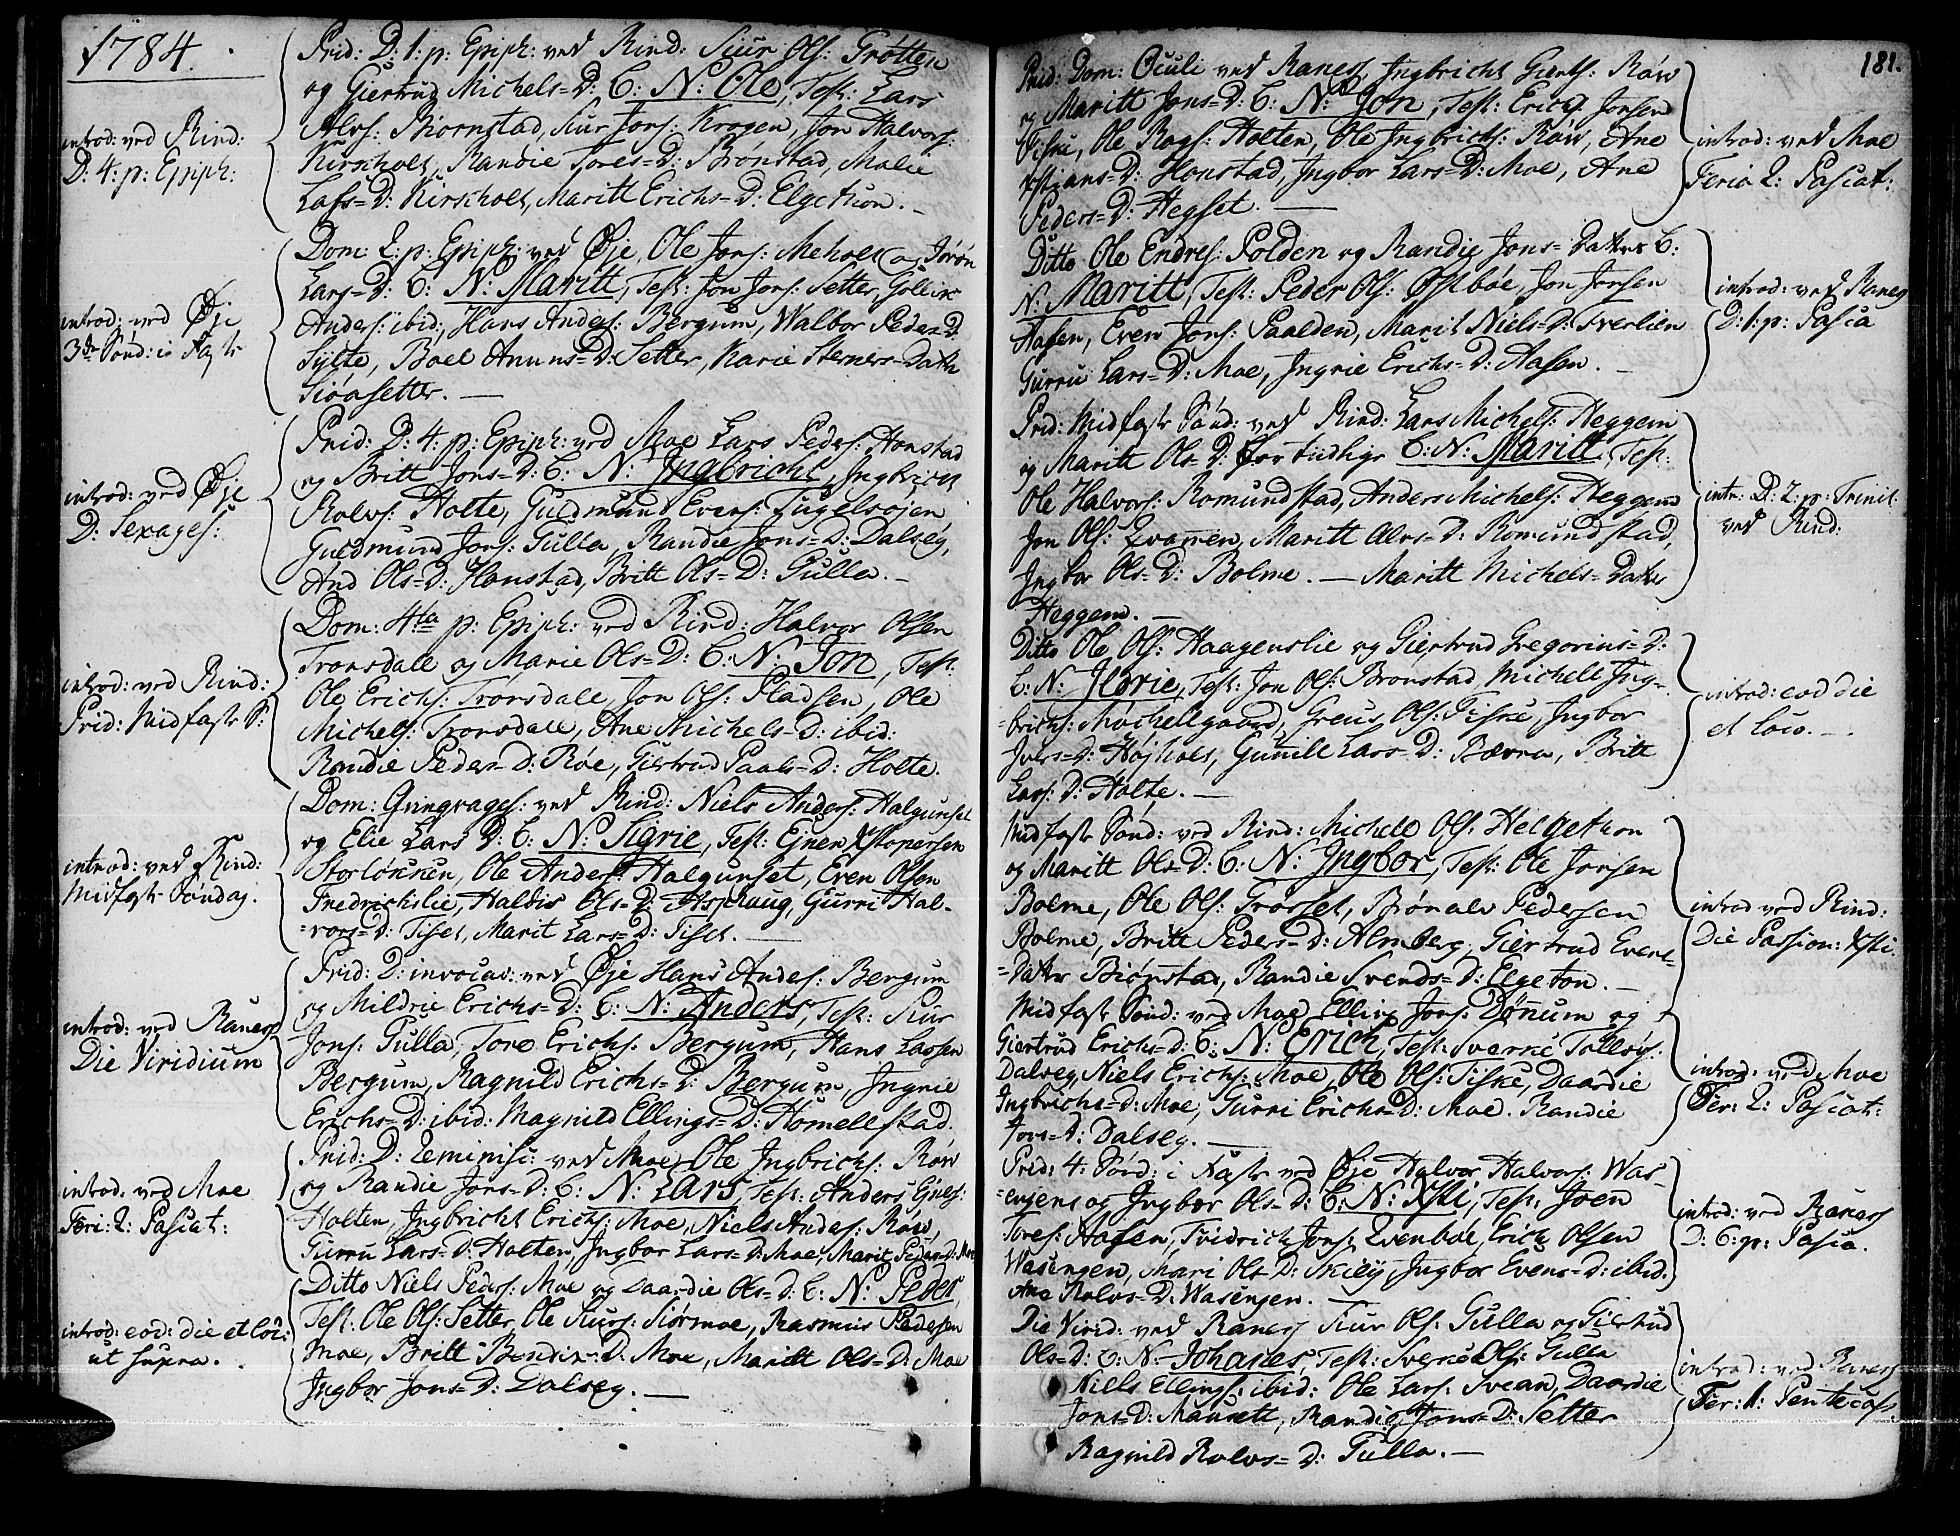 1784.
Prid: D: 1: p: Epiph: ved Rind: Siur Ols: Grøtten
og Giertrud Michels=D: C: N: Ole, Test: Lars
Alvs: Biørnstad, Siur Jons: Krogen, Jon Halvors:
Kirscholt, Randie Tores=D: Brønstad, Malie
Lars=D: Kirscholt, Maritt Erichs=D: Elgethon.
introd: ved Rind:
D: 4: p: Epiph:
Dom: 2: p: Epiph: ved Øje, Ole Jons: Meholt og Jørøn
Lars=D: C: N: Maritt, Test: Jon Jons: Setter, Gollik
Anders: ibid:, Hans Anders: Bergum, Walbor Peders D:
Sylte, Boel Amuns=D: Setter, Karie Steners=Datter
Siøasetter.
introd: ved Øje
3de Sønd: i Faste
Prid: D: 4: p: Epiph: ved Moe Lars Peders: Honstad
og Britt Jons=D: C: N: Ingbricht, Ingbricht
Rolvs: Holte, Guldmund Evens: Fugelsøjen
Guldmund Jons: Gulla, Randie Jons=D: Dalseg,
And Ols=D: Honstad, Britt Ols=D: Gulla.
introd: ved Øje
D: Sexages:
Dom: 4ta p: Epiph: ved Rind: Halvor Olsen
Tronsdale og Marie Ols=D: C: N: Jon, Test:
Ole Erichs: Tronsdale, Jon Ols: Pladsen, Ole
Michels: Tronsdale, Ane Michels=D: ibid:
Randie Peders=D: Røe, Giertrud Paals=D: Holte.
introd: ved Rind:
Prid: Midfaste S:
Dom: Qvinqvages: ved Rind: Niels Anders: Halgunset
og Elie Lars D: C: N: Sigrie, Test: Ejnen Xstopersen
Storløkken, Ole Anders: Halgunset, Even Olsen
Fredrichslie, Haldis Ols=D: Asphaug, Gurri Hal-
=vors=D: Fiset, Marit Lars=D: Fiset.
introd: ved Rind:
Midfaste Søndag.
Prid: D: invocav: ved Øje Hans Anders: Bergum
og Mildrie Erichs=D: C: N: Anders, Test: Siur
Jons: Gulla, Tore Erichs: Bergum, Hans Larsen
Bergum, Ragnild Erichs=D: Bergum, Ingrie
Erichs=D: ibid: Magnild Ellings=D: Homelstad.
introd: ved Ranes
Die Viridium
Prid: D: Reminisc: ved Moe, Ole Ingbrichs: Røv
og Randie Jons=D: C: N: Lars, Test: Anders Ejnes:
Holten, Ingbricht Erichs: Moe, Niels Anders: Røv,
Gurru Lars=D: Holten, Ingbor Lars=D: Moe, Marit Peders=D: Moe
introd: ved Moe
Feri: 2: Pascat:
Ditto Niels Peders: Moe og Daardie Ols=D: C: N: Peder
Test: Ole Ols: Setter, Ole Siurs: Siørmoe, Rasmus Pedersen
Moe, Britt Bendix=D: Moe, Maritt Ols=D: Moe
Ingbor Jons=D: Dalseg.
introd: eod: die et loc:
ut supra.
181.
Prid: Dom: Oculi ved Ranes, Ingbricht Gierts: Røv
og Maritt Jons=D: C: N: Jon, Test: Erich Jonsen
Fiske, Ole Rags: Holten, Ole Ingbrichts: Røv, Ane
Xstians=D: Honstad, Ingbor Lars=D: Moe, Ane
Peders=D: Hegset.
introd: ved Moe
Feria 2: Pascat:
Ditto Ole Endres: Polden og Randie Jons=Datter C:
N: Maritt, Test: Peder Ols: Østbøe, Jon Jonsen
Aasen, Even Jons: Paalden, Marit Niels=D: Tverlien
Gurru Lars=D: Moe, Ingrie Erichs=D: Aasen.
introd: ved Ranes
D: 1: p: Pasca
Prid: Midfaste Sønd: ved Rind: Lars Michels: Heggem
og Maritt Ols=D: for tidlige C: N: Maritt, Test:
Ole Halvors: Romundstad, Anders Michels: Heggem
Jon Ols: Qvammen, Maritt Alvs=D: Romundstad,
Ingbor Ols=D: Bolme. — Maritt Michels=Datter
Heggem.
intr: D: 2: p: Trinit
ved Rind:
Ditto Ole Ols: Haagenslie og Giertrud Gregorius=D:
C: N: Ildrie, Test: Jon Ols: Bronstad, Michell Ing-
=brichs: Mochellgaard, Greus Ols: Fiske, Ingbor
Ivers=D: Højholt, Gunild Lars=D: Bævra, Britt
Lars: D: Holte.
introd: eod die
et loco.
Midfaste Sønd: ved Rind: Michell Ols: Helgethon
og Maritt Ols=D: C: N: Ingbor, Test: Ole Jonsen
Bolme, Ole Ols: Frosset, Brønalv Pedersen
Bolme, Britt Peders=D: Almberg, Giertrud Evens-
=Datter Biønstad, Randie Svends=D: Elgeton.
introd ved Rind:
Die Passion: Xsti.
Midfaste Sønd: ved Moe Elling Jons: Dønum og
Giertrud Erichs=D: C: N: Erich, Test: Sverke Tollevs:
Dalseg, Niels Erichs: Moe, Ole Ols: Fiske, Daardie
Ingbrichs=D: Moe, Gurri Erichs=D: Moe. Randie
Jons=D: Dalseg.
introd: ved Moe
Fer: 2: Pascat:
Prid: 4: Sønd: i Faste ved Øje Halvor Halvors: Was-
=engen og Ingbor Ols=D: C: N: Xsti, Test: Joen
Tores: Aasen, Fridrich Jons: Qvenbøe, Erich Olsen
Wasengen, Mari Ols=D: Skieij, Ingbor Evens=D: ibid.
Ane Rolvs=D: Wasengen.
introd: ved Ranes
D: 6: p: Pasca.
Die Virid: ved Ranes Siur Ols: Gulla og Giertrud
Ols=D: C: N: Johanes, Test: Sverke Ols: Gulla
Niels Ellings: ibid: Ole Lars: Svean, Daardie
Jons=D: Maurett, Randie Jons=D: Setter
Ragnild Rolvs=D: Gulla.
introd: ved Ranes
Fer: 1: Pentecost